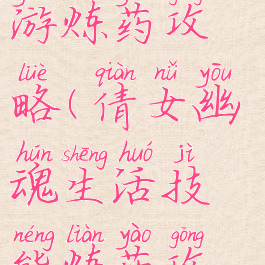 游炼药攻
lüè qiàn nǚ yōu
略(倩女幽
hún shēng huó jì
魂生活技
néng liàn yào gōng
能炼药攻